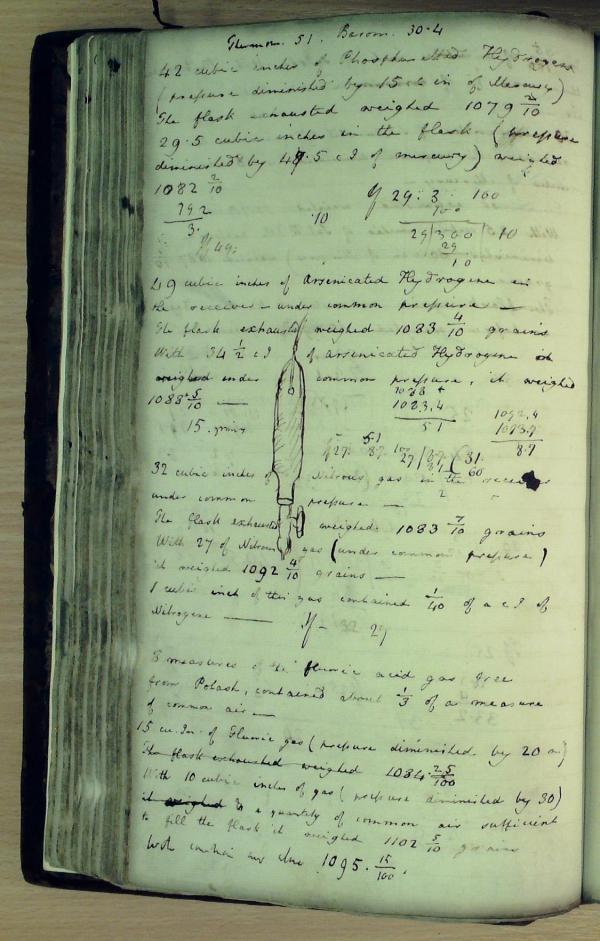 Thermom. 51. Barom. 30.4
42 cubic inches of Phosphuretted Hydrogene
(pressure diminished by 15 c in of Mercury)
The flask exhausted weighed 1079 2/10
29.5 cubic inches in the flask (pressure
diminished by 49.5 c I of mercury) weighed
1082 2/10
792
3.
If 49:
.10
If 29: 3: 100
100
29/300/10
29
10
49 cubic inches of Arsenicated Hydrogene in
the receiver – under common pressure –
The flask exhausted weighed 1083 4/10 grains
With 34 1/2 c I of arsenicated Hydrogene
weighed under common pressure, it weighed
1088 5/10 —
1083.4
51
15. grains
1092.4
1083.7
8.7
32 cubic inches of Nitrous gas in the receiver
under common pressure —
The flask exhausted weighed 1083 7/10 grains
With 27 of Nitrous gas (under common pressure)
it weighed 1092 4/10 grains —
1 cubic inch of this gas contained 1/40 of a c I of
Nitrogene — If – 27
8 measures of the fluoric acid gas, free
from Potash, contained about 1/3 of a measure
of common air —
15 cu. In. of Fluoric gas (pressure diminished by 20
The flask exhausted weighed 1084. 25/100
With 10 cubic inches of gas (pressure diminished by 30)
it weighed & a quantity of common air sufficient
to fill the flask it weighed 1102 5/10 grains
With common air alone 1095. 15/100.